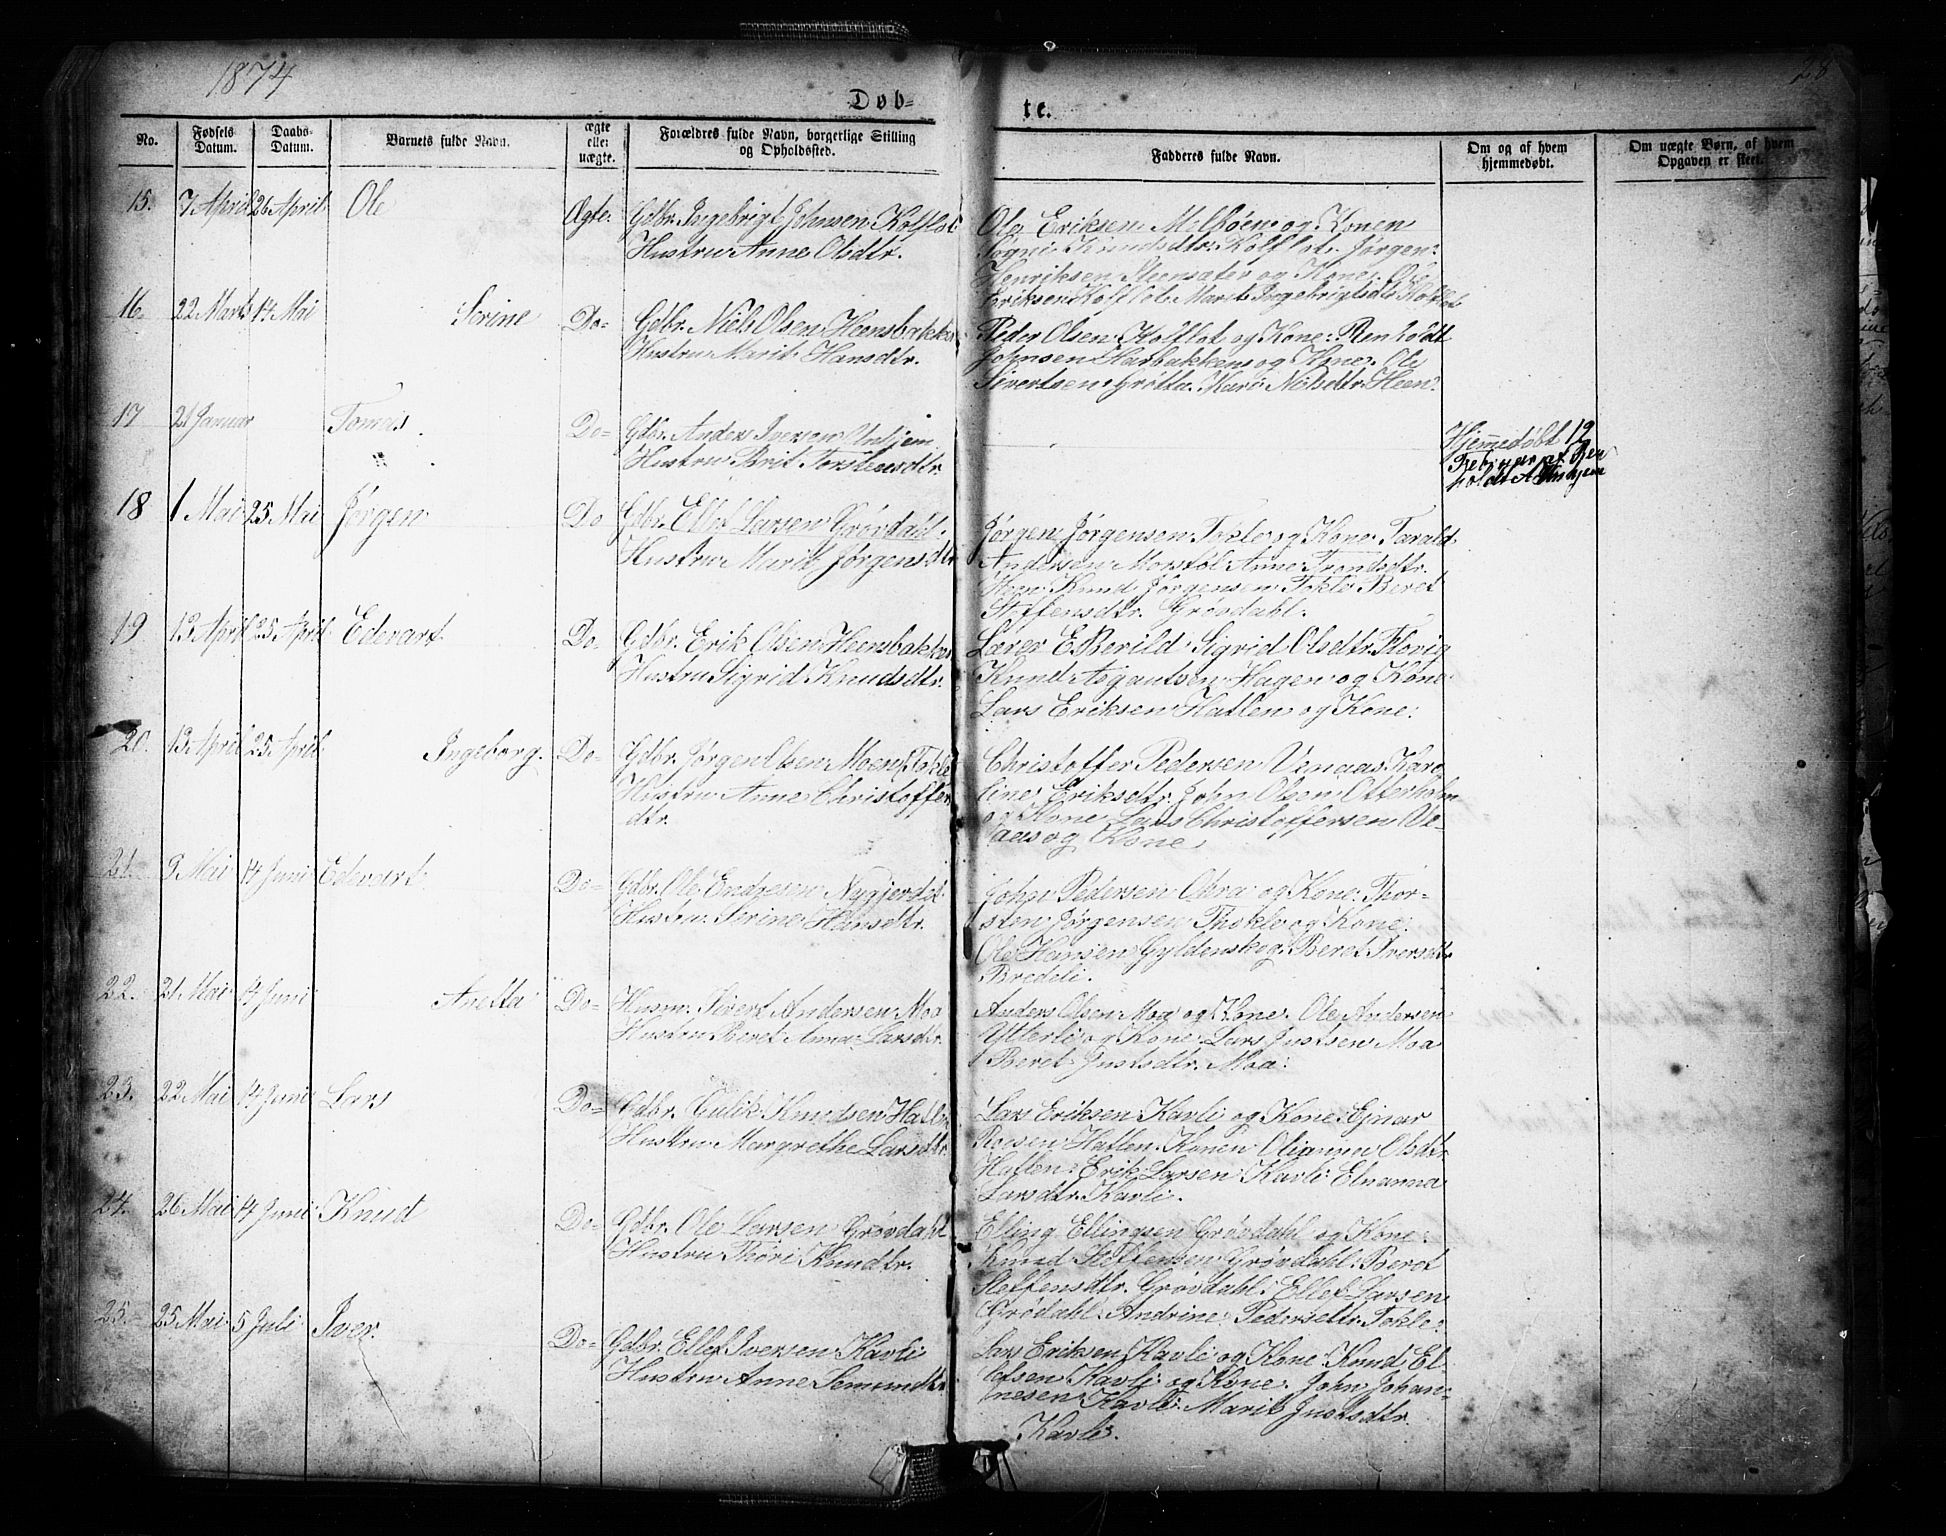 1874
28
Døb-
te.
No.
Fødsels Datum.
Daabs- Datum.
Barnets fulde Navn.
ægte eller uægte.
Forældres fulde Navn, borgerlige Stilling og Opholdssted.
Fadderes fulde Navn.
Om og af hvem hjemmedøbt.
Om uægte Børn, af hvem Opgaven er skeet.
15. 7 April 26 April. Ole Ægte. Gdbr. Ingebrigt Johnsen Kolflot
Hustru Anne Olsdtr.
Ole Eriksen Melbøen og Konen
Kolflot. Jørgen
Henriksen Steensæter og Kone. Ole
Eriksen Kolflot. Marit Ingebrigtsdtr Kolflot
16. 22 Marts 14 Mai Serine Do= Gdbr. Niels Olsen Heensbakken
Hustru Marit Hansdtr.
Peder Olsen Kolflot og Kone: Renholdt
Johnsen Haobakkens og Kone. Ole
Sivertsen Grötta. Mari Nielsdtr. Heen.
17 21 Januar Tomas. Do= Gdbr. Anders Iversen Unhjem
Hustru Brit Torstensdtr.
Hjemmedøbt 12
Februar af Ren
holdt A Unhjem
18 1 Mai 25 Mai Jørgen Do Gdbr. Ellev Larsen Grøvdahl.
Hustru Marit Jørgensdtr
Jørgen Jørgensen Tokle og Kone. Tarald
Andersen Morstøl. Anne Trondsdtr.
Heen. Knud Jørgensen Tokle Beret
Steffensdtr. Grøvdahl.
19 13 April 25 April. Edevart Do= Gdbr. Erik Olsen Heensbakken
Hustru Sigrid Knudsdtr.
Lærer E. Berild. Sigrid Olsdtr. Flovig
Knud Asgautsen Hagen og Kone.
Lars Eriksen Hatlen og Kone.
20. 13 April 25 April. Ingeborg. Do= Gdbr. Jørgen Olsen Moen, Tokle
Hustru Anne Christoffer
dtr.
Christoffer Pedersen Venaas Karo
line Eriksdtr. John Olsen Otterholm
og Kone. Lars Christoffersen Ve-
aas og Kone.
21. 9 Mai 14 Juni Edevart Do= Gdbr. Ole Endresen Nygjerdet
Hustru. Sirine Hansdtr.
John Pedersen og Kone. Thor-
sten Jørgensen Thokle og Kone.
Ole Hansen Gyldenskog: Beret Iversdtr
Bredeli.
22. 21 Mai 14 Juni Anetta Do= Husm. Sivert Andersen Moa
Hustru Beret Anna Larsdtr.
Anders Olsen Moa og Kone. Ole Andersen
Ytterli og Kone. Lars Justsen Moa
Beret Justsdtr. Moa.
23. 22 Mai 14 Juni Lars Do= Gdbr. Gulik Knudsen Hatlen
Hustru Margrethe Larsdtr.
Lars Eriksen Kavli og Kone: Ejnar
Roesen Hatlen. Konen Olianna Olsdtr
Hatlen: Erik Larsen Kavli: Elnanna
Larsdtr. Kavli.
24. 26 Mai 14 Juni Knud Do= Gdbr. Ole Larsen Grøvdahl
Hustru Thøri Knudtr.
Elling Ellingsen Grøvdahl og Kone:
Knud Steffensen Grøvdahl: Beret
Steffensdtr. Grøvdahl. Ellef Larsen
Grødahl. Andrine Pedersdtr. Tokle.
25. 25 Mai 5 Juli Iver. Do= Gdbr. Ellef Iversen Kavli
Hustru Anne Semundtr.
Lars Eriksen Kavli og Kone. Knud El-
lefsen Kavli og Kone. John Johan-
nesen Kavli. Marit Justsdtr.
Kavli.